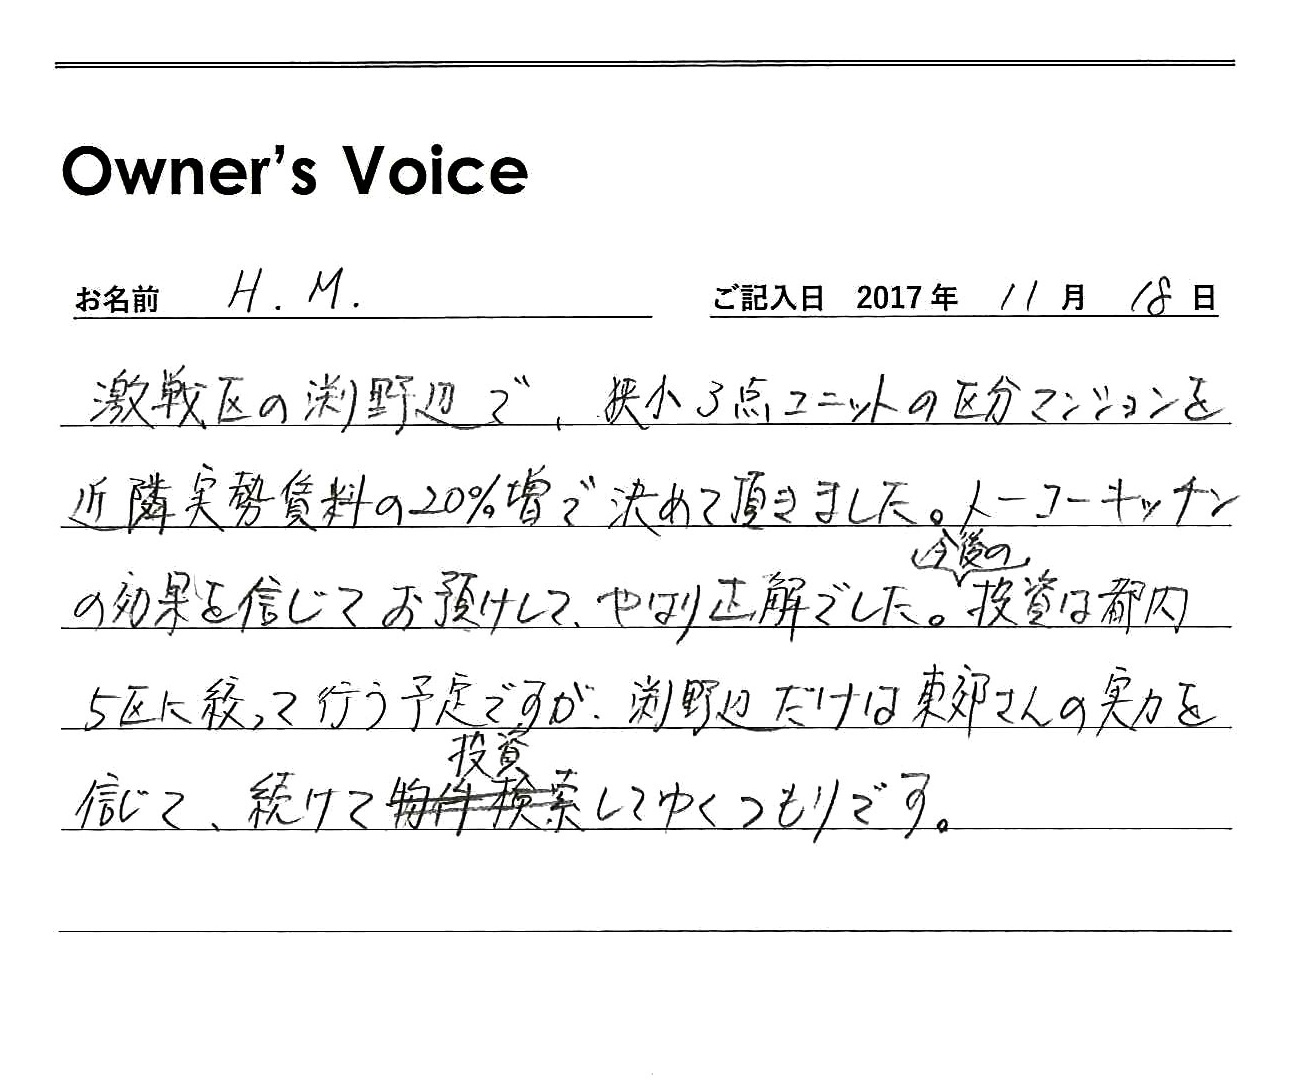 Owner's Voice
お名前 H.M. ご記入日 2017年 11月 18日
激戦区の渕野辺で、狭小3点ユニットの区分マンションを
近隣実勢賃料の20%増で決めて頂きました。トーコーキッチン
の効果を信じてお預けして、やはり正解でした。今後の投資は都内
5区に絞って行う予定ですが、渕野辺だけは東郊さんの実力を
信じて、続けて物件検索投資してゆくつもりです。